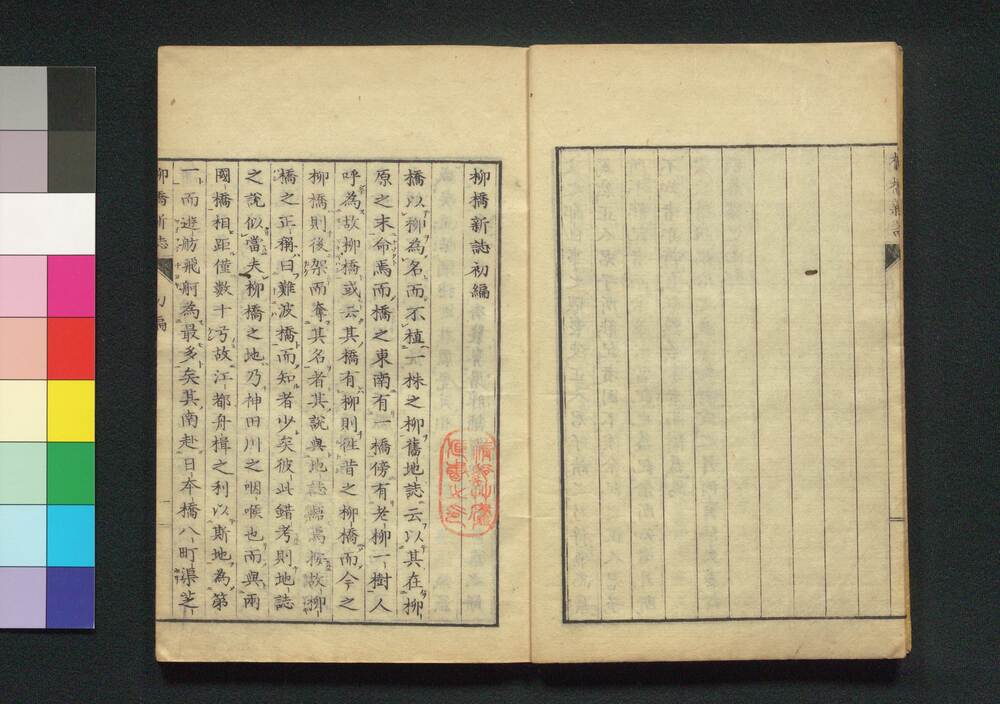 柳橋新誌初編
橋以柳為名而不植一株之柳舊地誌云以其在柳
原之末命焉而橋之東南有一橋傍有老柳一樹人
呼為故柳橋或云其橋有柳則往昔之柳橋而今之
柳橋則後架而奪其名者其說與地誌齟齬焉按故柳
橋之正稱曰難波橋而知者少矣彼此錯考則地誌
之說似當夫柳橋之地乃神田川之咽喉也而與兩
國橋相距僅數十弓故江都舟楫之利以斯地為第
一而遊舫飛舸為最多矣其南赴日本橋八町渠芝
柳橋新誌 初編